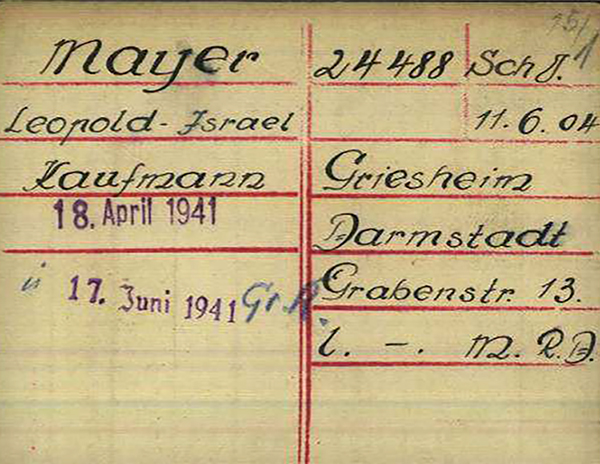 Mayer
Leopold - Israel
Kaufmann
18. April 1941
ü 17. Juni 1941 Gr. R.
15/1
24488 Sch J.
11. 6. 04
Griesheim
Darmstadt
Grabenstr. 13.
l. -. M. R.D.